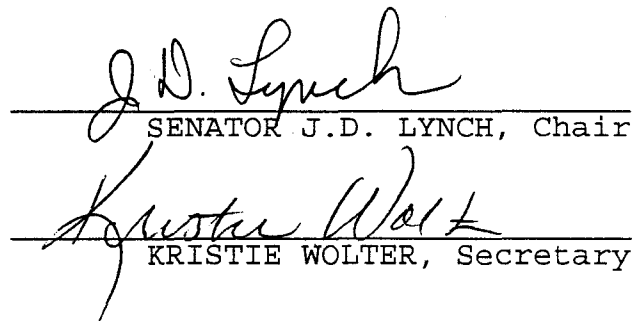 J.D. Lynch
SENATOR J.D. LYNCH, Chair
Kristie Wolter
KRISTIE WOLTER, Secretary